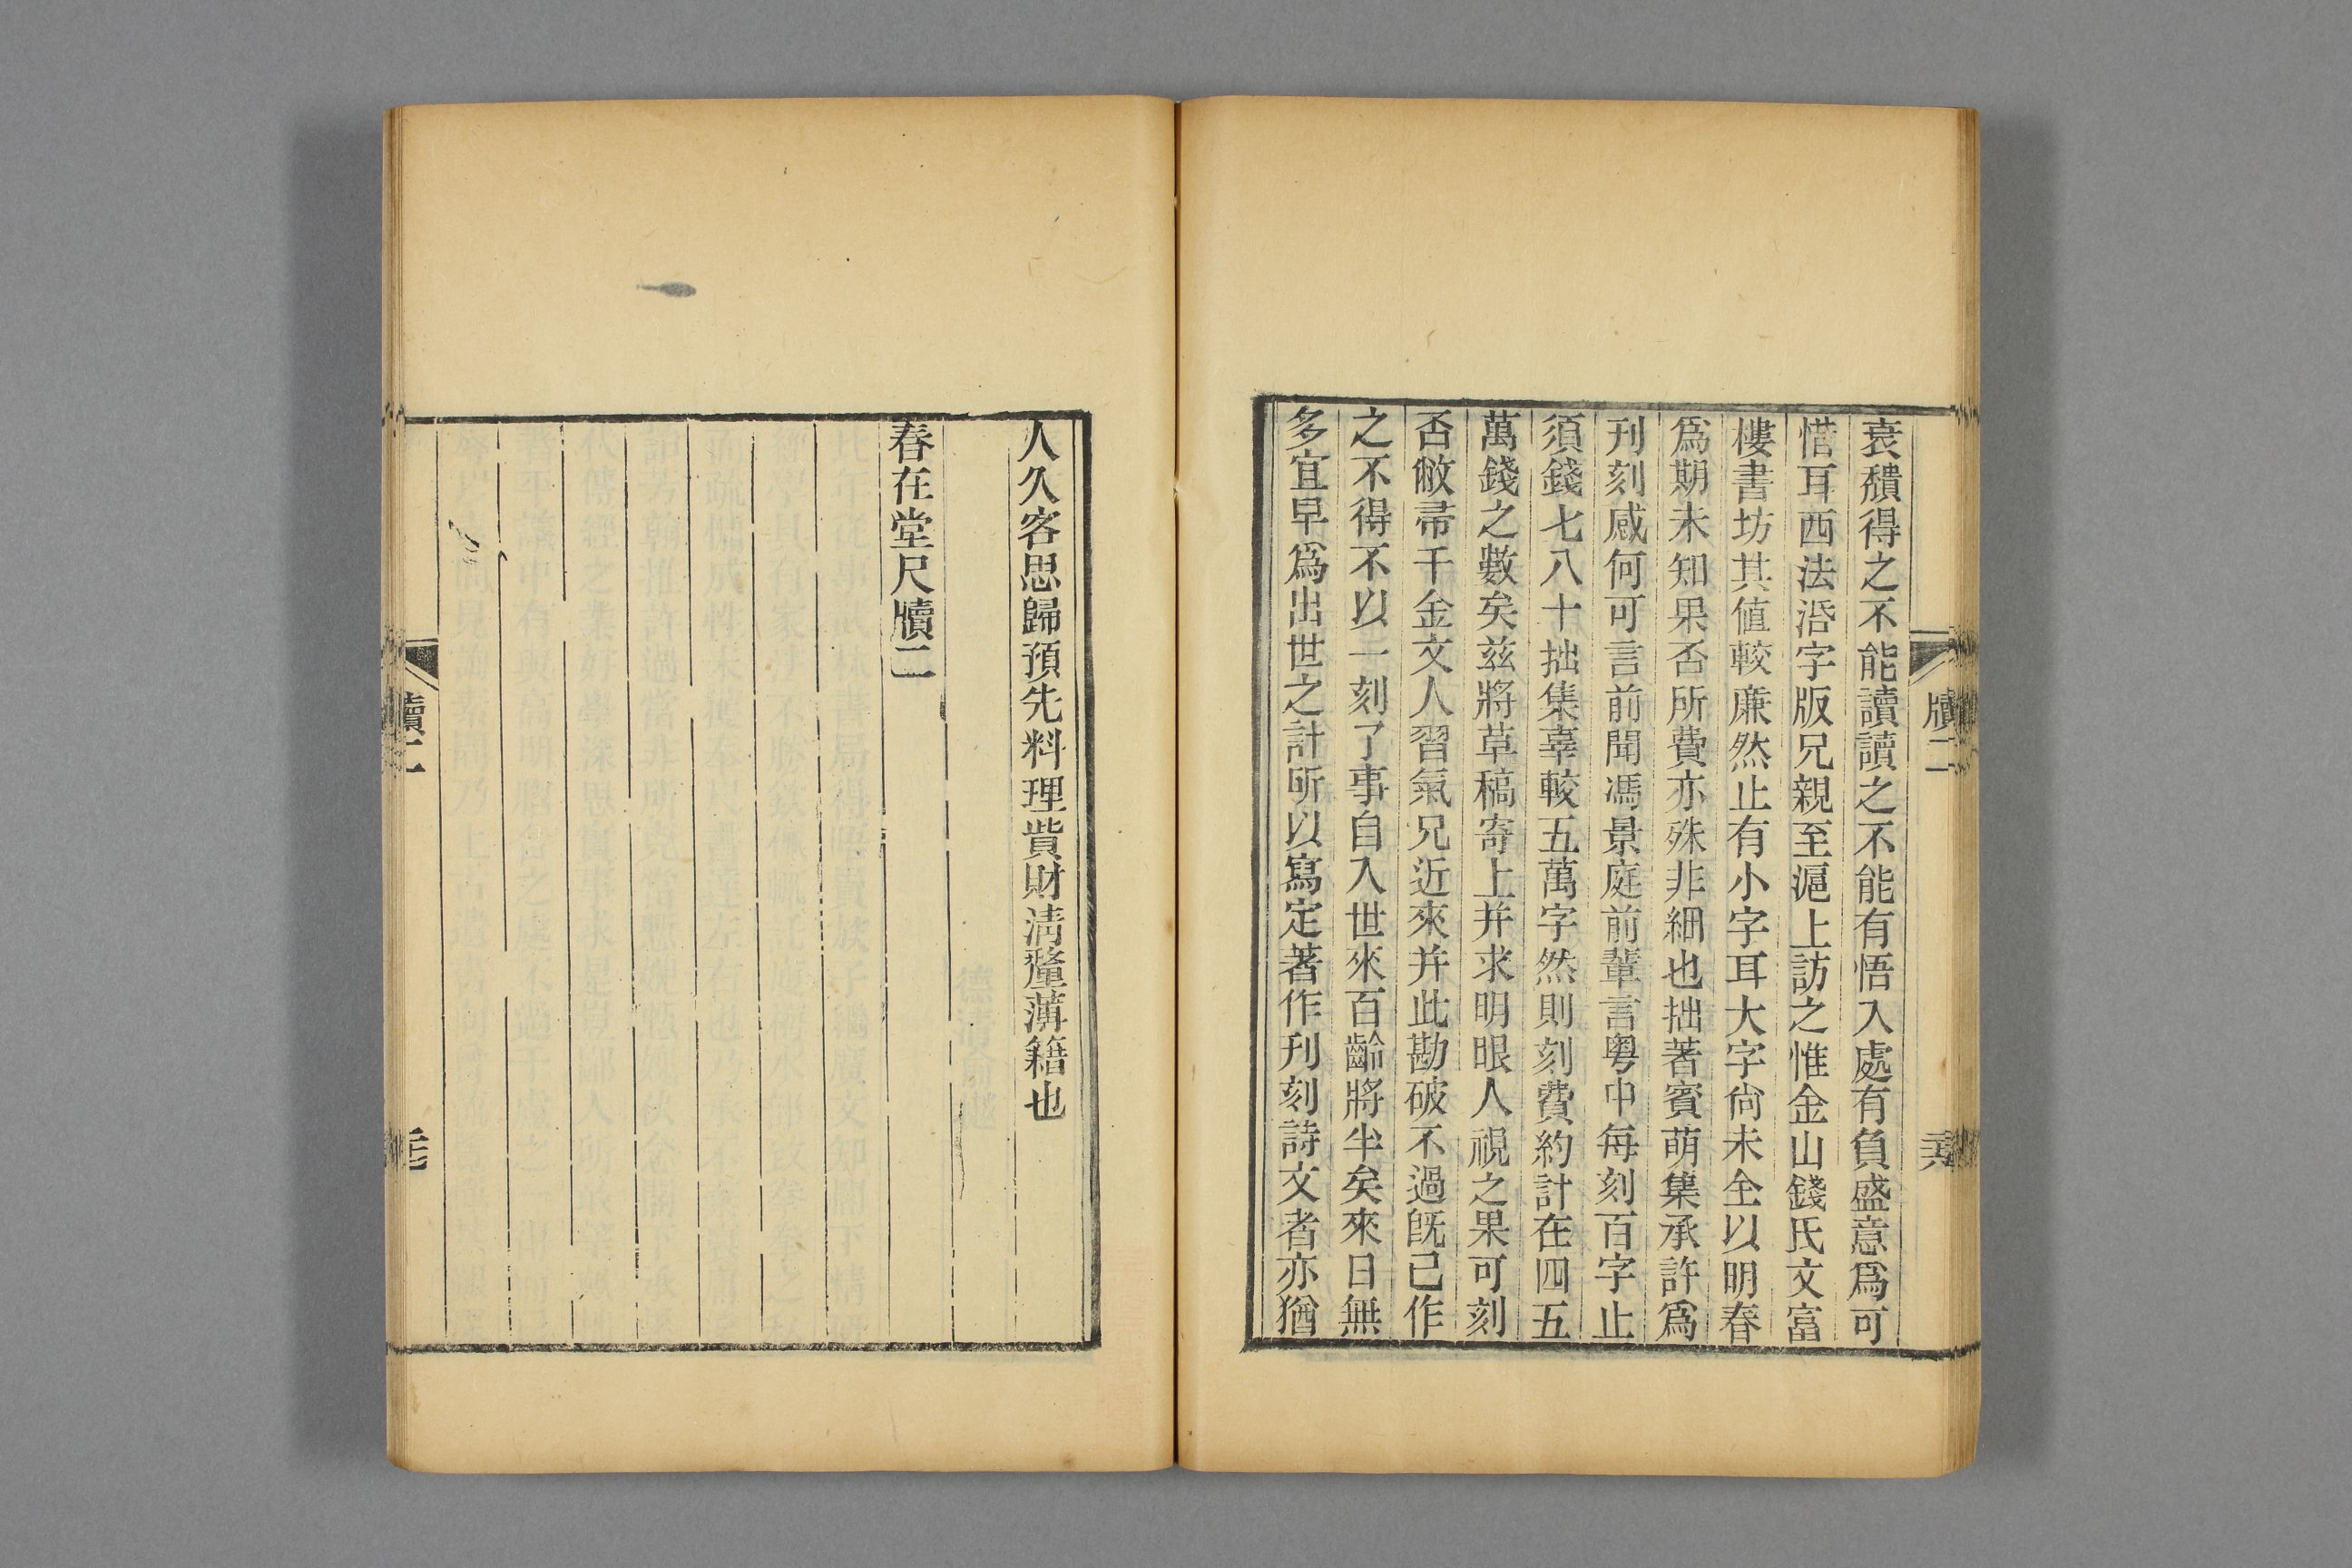 衰穨得之不能讀讀之不能有悟入處有負盛意爲可
惜耳西法活字版兄親至滬上訪之惟金山錢氏文富
樓書坊其值較廉然止有小字耳大字尙未全以明春
爲期未知果否所費亦殊非細也拙著賓萌集承許爲
刊刻感何可言前聞馮景庭前輩言粵中每刻百字止
須錢七八十拙集辜較五萬字然則刻費約計在四五
萬錢之數矣兹將草稿寄上并求明眼人視之果可刻
否敝帚千金文人習氣兄近來并此勘破不過旣已作
之不得不以一刻了事自入世來百齡將半矣來日無
多宜早爲出世之計所以寫定著作刊刻詩文者亦猶
牘二
人久客思歸預先料理貲財清釐薄籍也
春在堂尺牘二
牘二